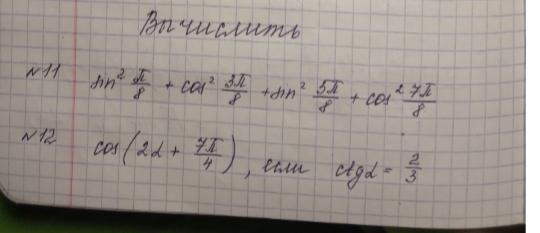 Вычислить
№11 sin² π/8 + cos² 3π/8 + sin² 5π/8 + cos² 7π/8
№12 cos(2α + 7π/4), если ctgα = 2/3